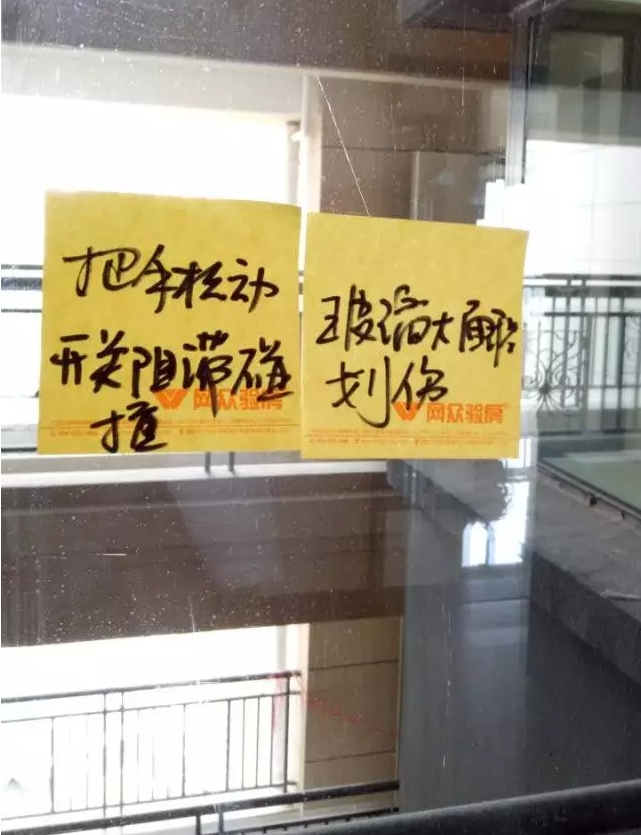 把手松动
开关阻滞碰
撞
网众验房
玻璃大面积
划伤
网众验房